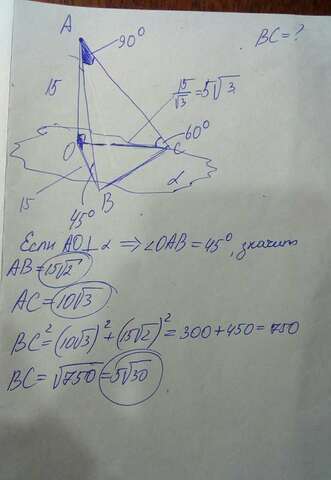 A
90°
BC=?
15
15/√3=5√3
60°
O
C
α
15
45°
B
Если AO⊥α ⇒ ∠OAB=45°, значит
AB=15√2
AC=10√3
BC²=(10√3)²+(15√2)²=300+450=750
BC=√750=5√30